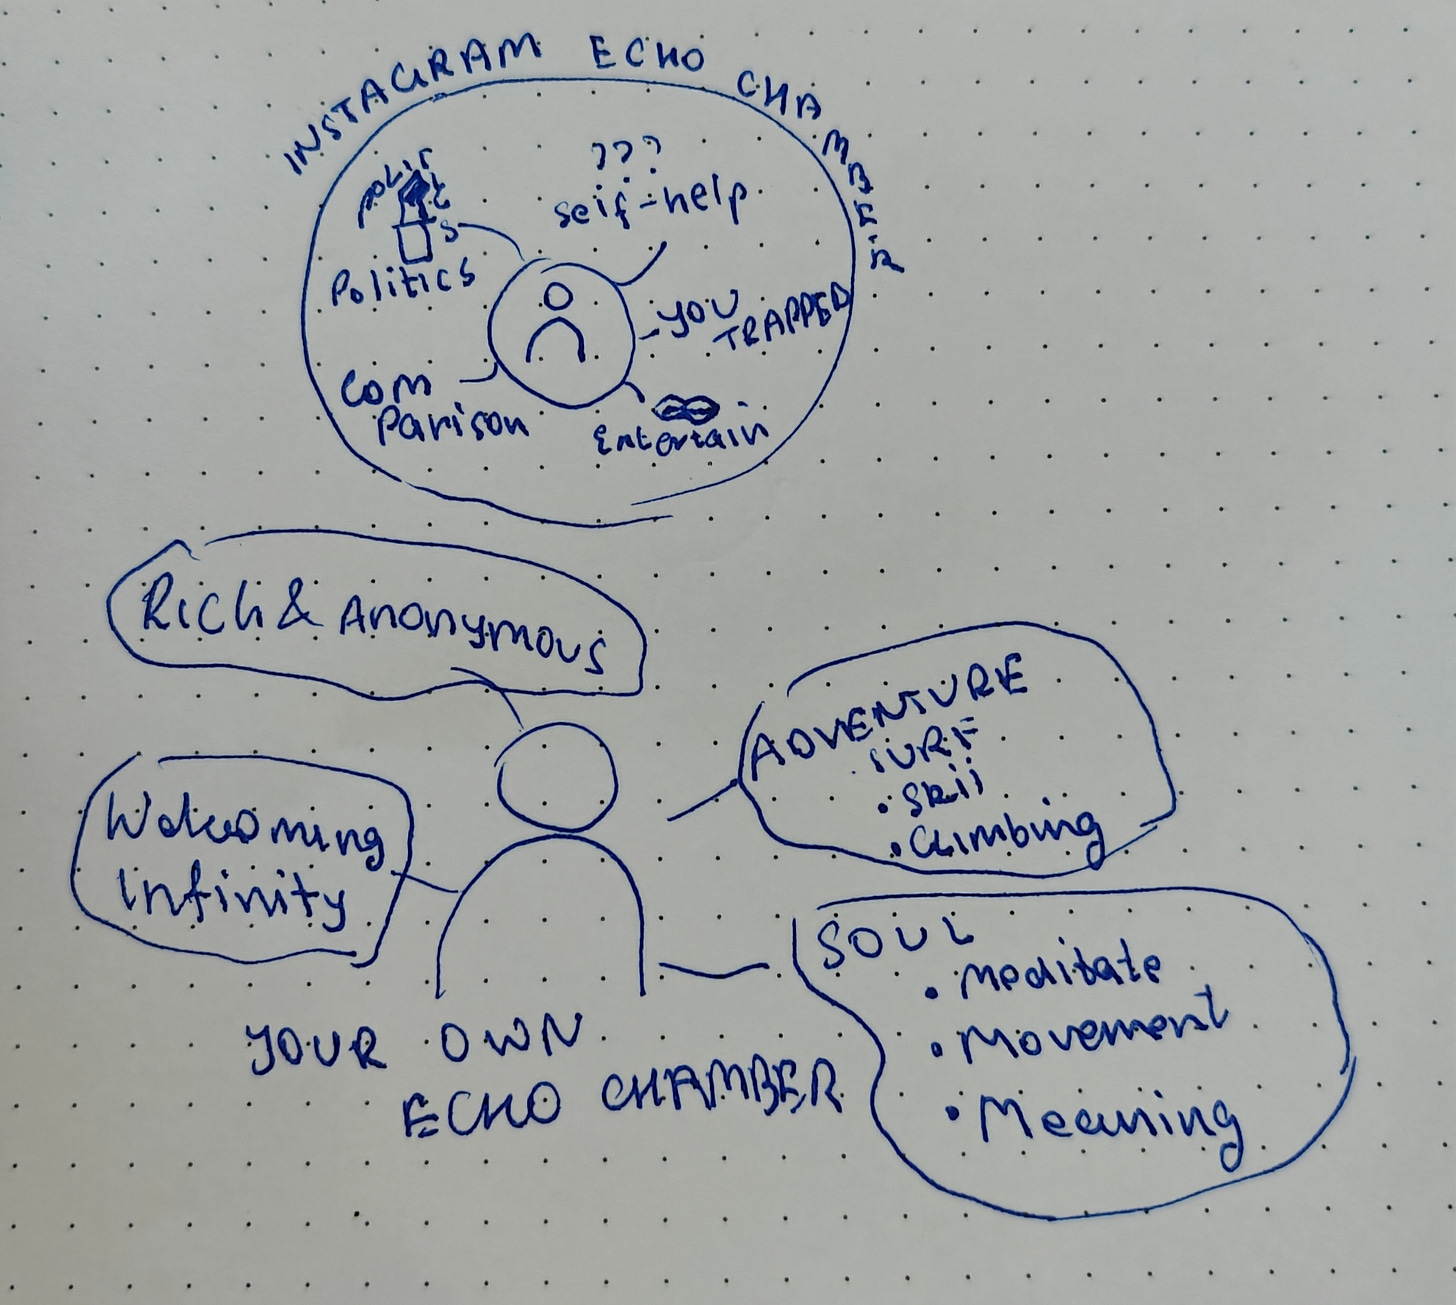 INSTAGRAM ECHO CHAMBER
POLITICS
Politics
???
self-help
YOU
TRAPPED
Com
Parison
Entertain
Rich & Anonymous
ADVENTURE
SURF
• Skii
• Climbing
Welcoming
Infinity
SOUL
• Meditate
• Movement
• Meaning
YOUR OWN
ECHO CHAMBER